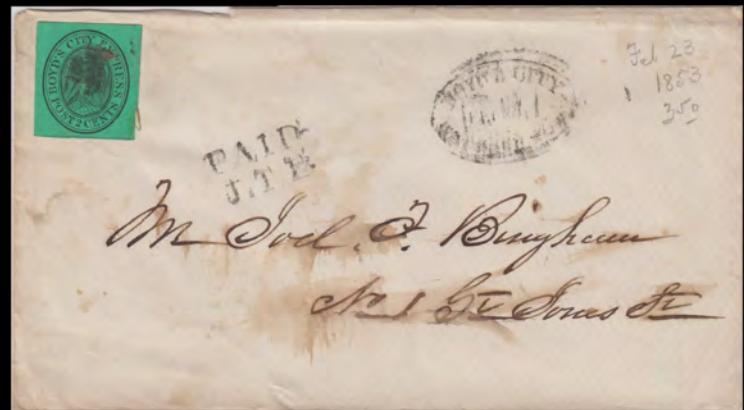 BOYD'S CITY EXPRESS
POST 2 CENTS
BOYD'S CITY
Feb 23
1853
350
PAID
J.T.B.
M Joel. F. Bingham
No 1 St Jones St